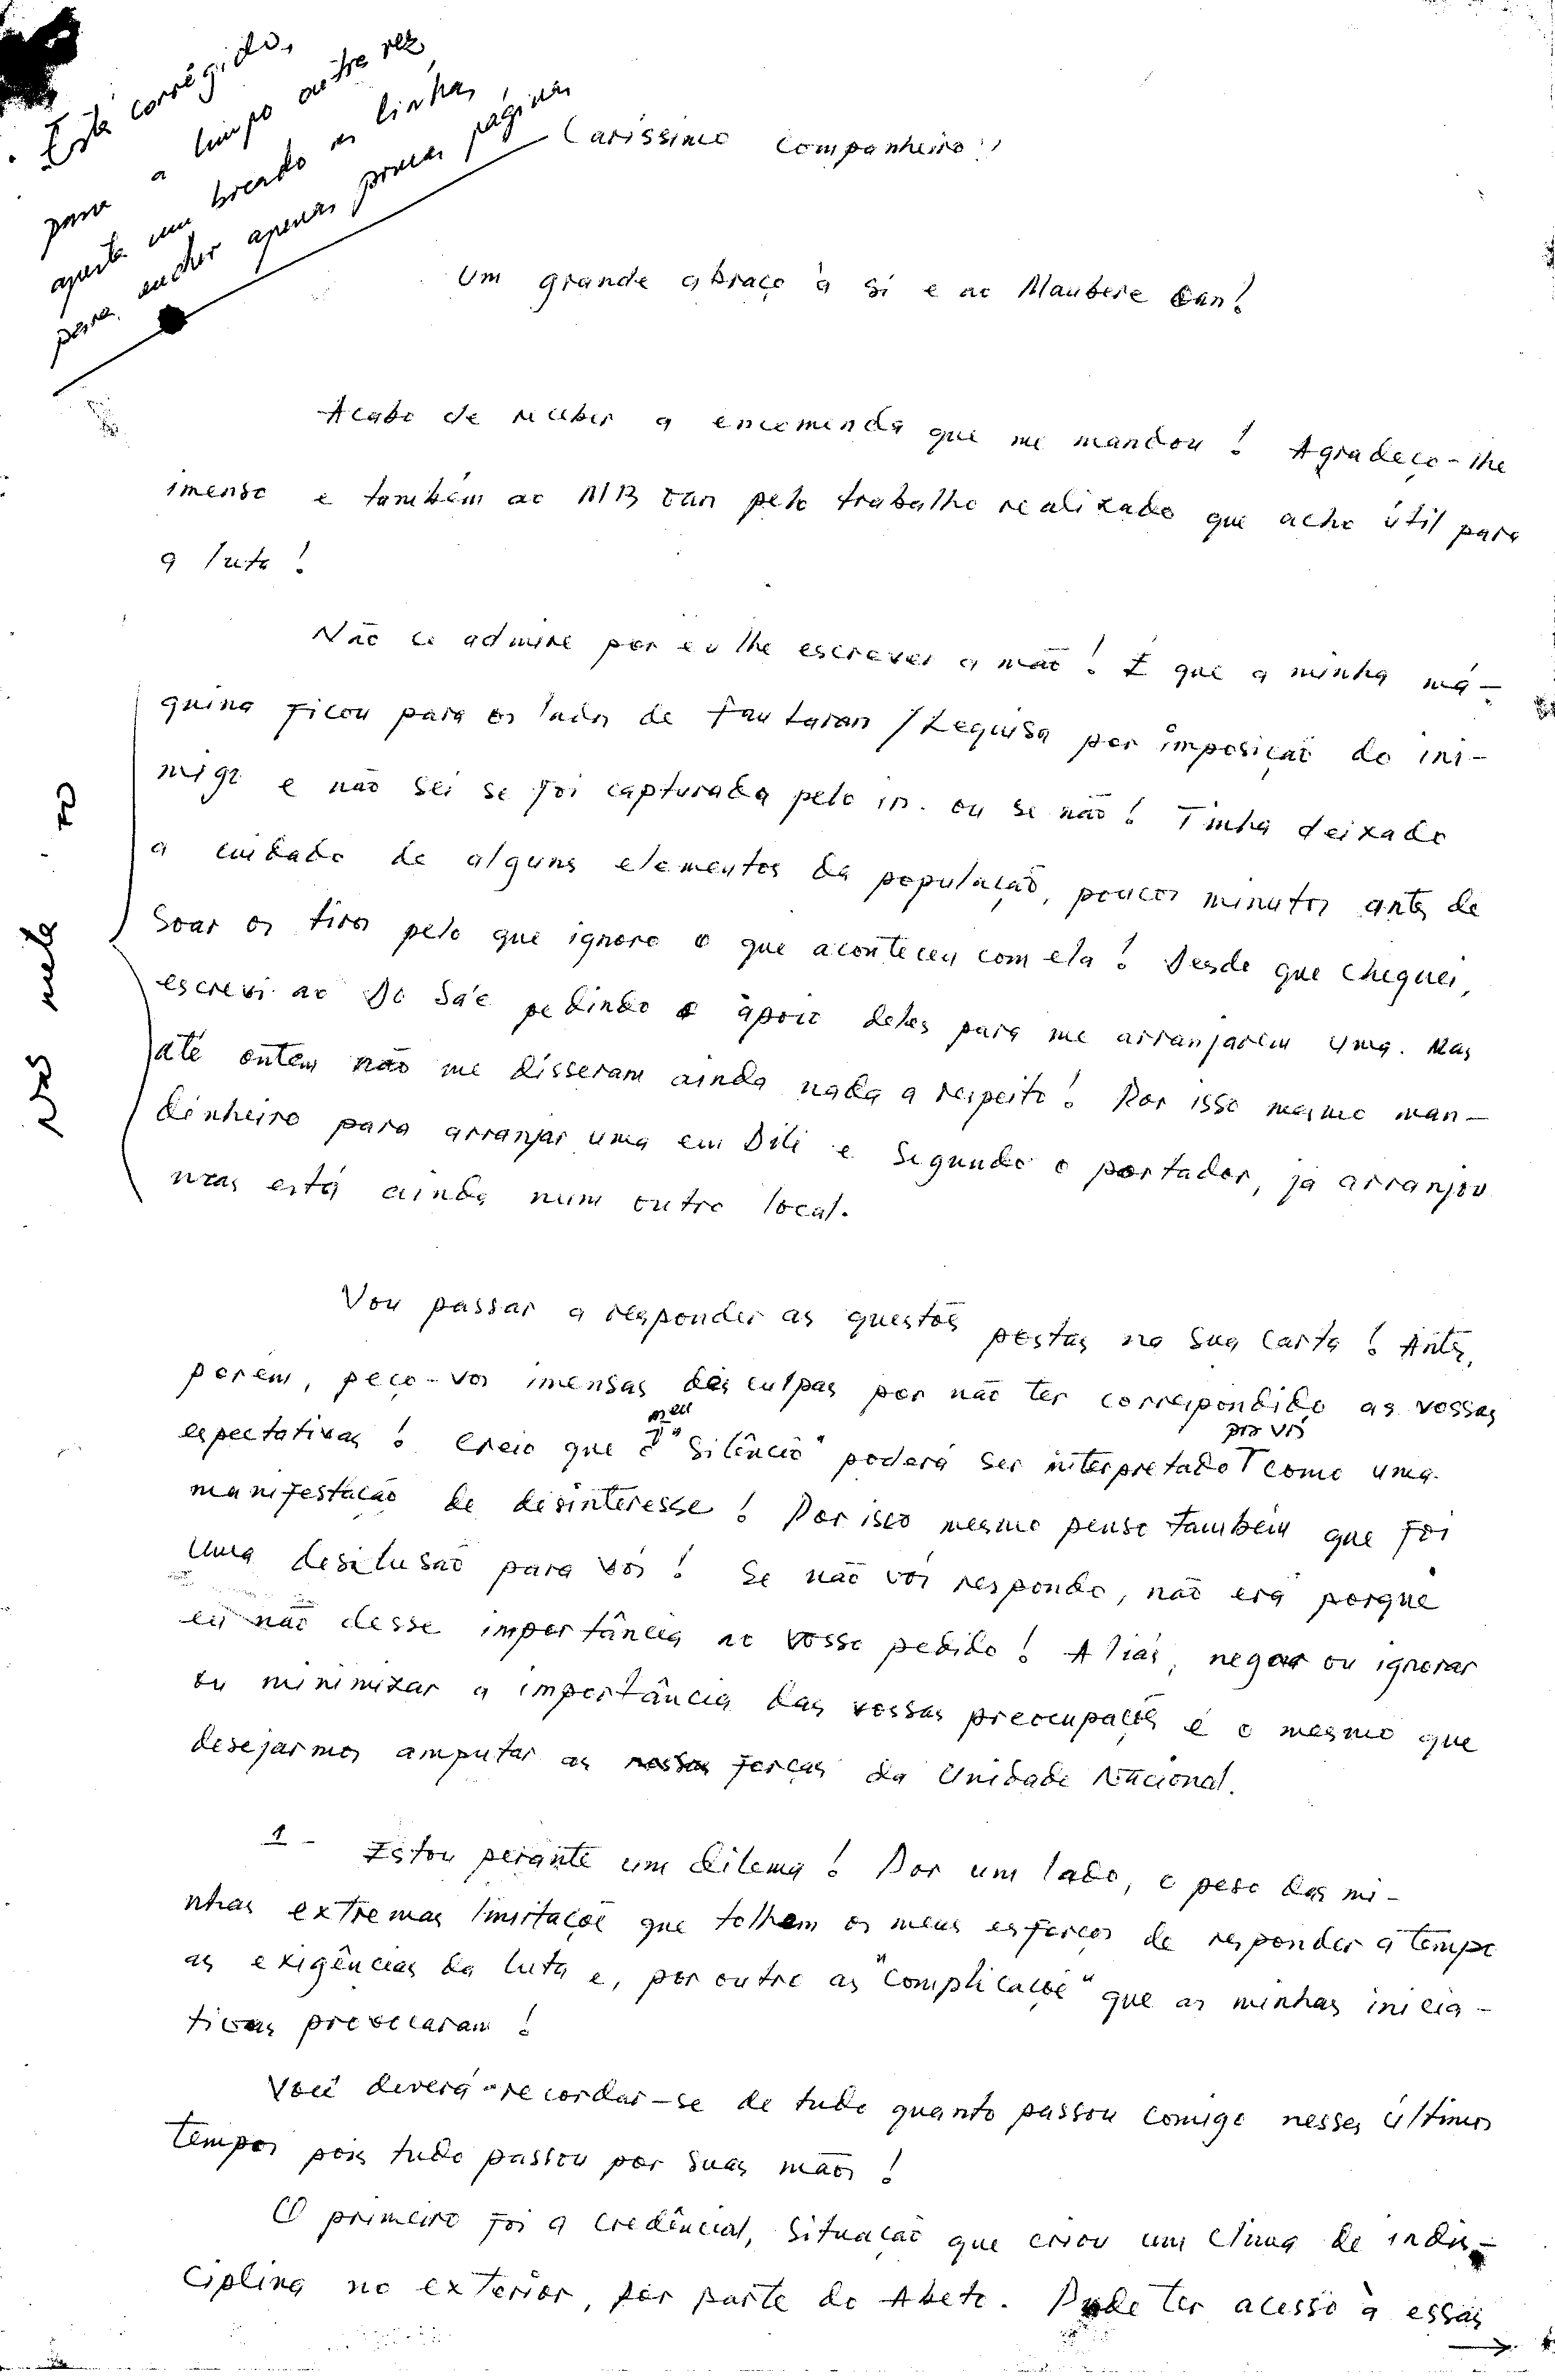 . Está corrégido,
passa a limpo outra vez
aperta um bocado as linhas,
para encher apenas poucas páginas
Caríssimo Companheiro!
Um grande abraço à si e ao Maubere Oan!
Acabo de receber a encomenda que me mandou! Agradeço-lhe
imenso e também ao MB Oan pelo trabalho realizado que acho útil para
a luta!
Não se admire por eu lhe escrever a mão! É que a minha má-
quina ficou para os lados de Fauturan / Lequisa por imposição do ini-
migo e não sei se foi capturada pelo in. ou se não! Tinha deixado
a cuidado de alguns elementos da população, poucos minutos antes de
soar os tiros pelo que ignoro o que aconteceu com ela! Desde que cheguei,
escrevi ao Do Sa'e pedindo o apoio deles para me arranjarem uma. Mas
até ontem não me disseram ainda nada a respeito! Por isso mesmo man-
dinheiro para arranjar uma em Dili e segundo o portador, já arranjou
mas está ainda num outro local.
Não mete
Vou passar a responder as questões postas na sua carta! Antes,
porém, peço-vos imensas desculpas por não ter correspondido as vossas
espectativas! Creio que o meu "silêncio" poderá ser interpretado por vós como uma
manifestação de desinteresse! Por isso mesmo penso também que foi
uma desilusão para vós! Se não vós respondo, não era porque
eu não desse importância ao vosso pedido! Aliás, negar ou ignorar
ou minimizar a importância das vossas preocupações é o mesmo que
desejarmos amputar as forças da Unidade Nacional.
1 - Estou perante um dilema! Por um lado, o peso das mi-
nhas extremas limitações que tolhem os meus esforços de responder a tempo
as exigências da luta e, por outro as "complicações" que as minhas inicia-
tivas provocaram!
Você deverá recordar-se de tudo quanto passou comigo nesses últimos
tempos pois tudo passou por suas mãos!
O primeiro foi a credêncial, situação que criou um clima de indis-
ciplina no exterior, por parte do Abeto. Pude ter acesso à essas